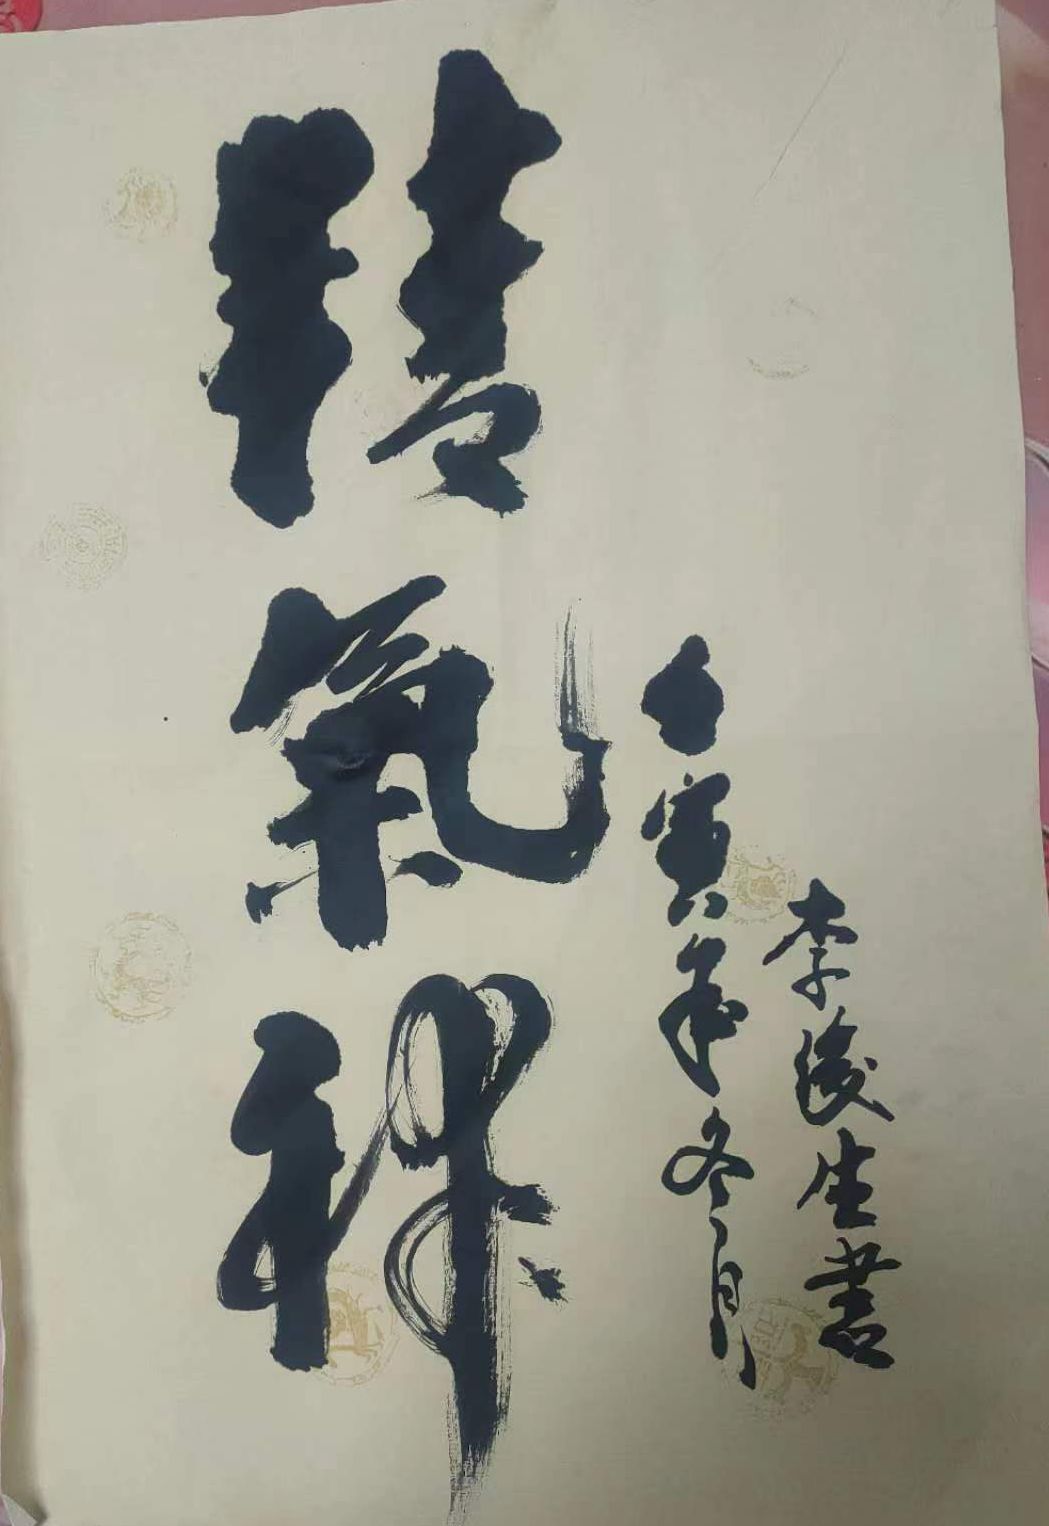 精氣神
壬寅年冬月
李俊生書